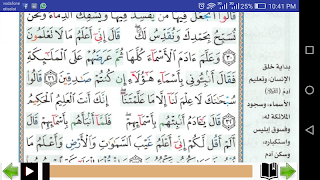 vodafone
etisalat
10:41 PM
قَالُوٓا۟ أَتَجْعَلُ فِيهَا مَن يُفْسِدُ فِيهَا وَيَسْفِكُ ٱلدِّمَآءَ وَنَحْنُ
نُسَبِّحُ بِحَمْدِكَ وَنُقَدِّسُ لَكَ ۖ قَالَ إِنِّىٓ أَعْلَمُ مَا لَا تَعْلَمُونَ
٣٠ وَعَلَّمَ ءَادَمَ ٱلْأَسْمَآءَ كُلَّهَا ثُمَّ عَرَضَهُمْ عَلَى ٱلْمَلَـٰٓئِكَةِ
فَقَالَ أَنۢبِـُٔونِى بِأَسْمَآءِ هَـٰٓؤُلَآءِ إِن كُنتُمْ صَـٰدِقِينَ ٣١ قَالُوا۟
سُبْحَـٰنَكَ لَا عِلْمَ لَنَآ إِلَّا مَا عَلَّمْتَنَآ ۖ إِنَّكَ أَنتَ ٱلْعَلِيمُ ٱلْحَكِيمُ
٣٢ قَالَ يَـٰٓـَٔادَمُ أَنۢبِئْهُم بِأَسْمَآئِهِمْ ۖ فَلَمَّآ أَنۢبَأَهُم بِأَسْمَآئِهِمْ
قَالَ أَلَمْ أَقُل لَّكُمْ إِنِّىٓ أَعْلَمُ غَيْبَ ٱلسَّمَـٰوَٰتِ وَٱلْأَرْضِ وَأَعْلَمُ مَا
بداية خلق
الإنسان، وتعليم
آدم
الأسماء، وسجود
الملائكة له،
وفسوق إبليس
واستكباره،
وسكن آدم